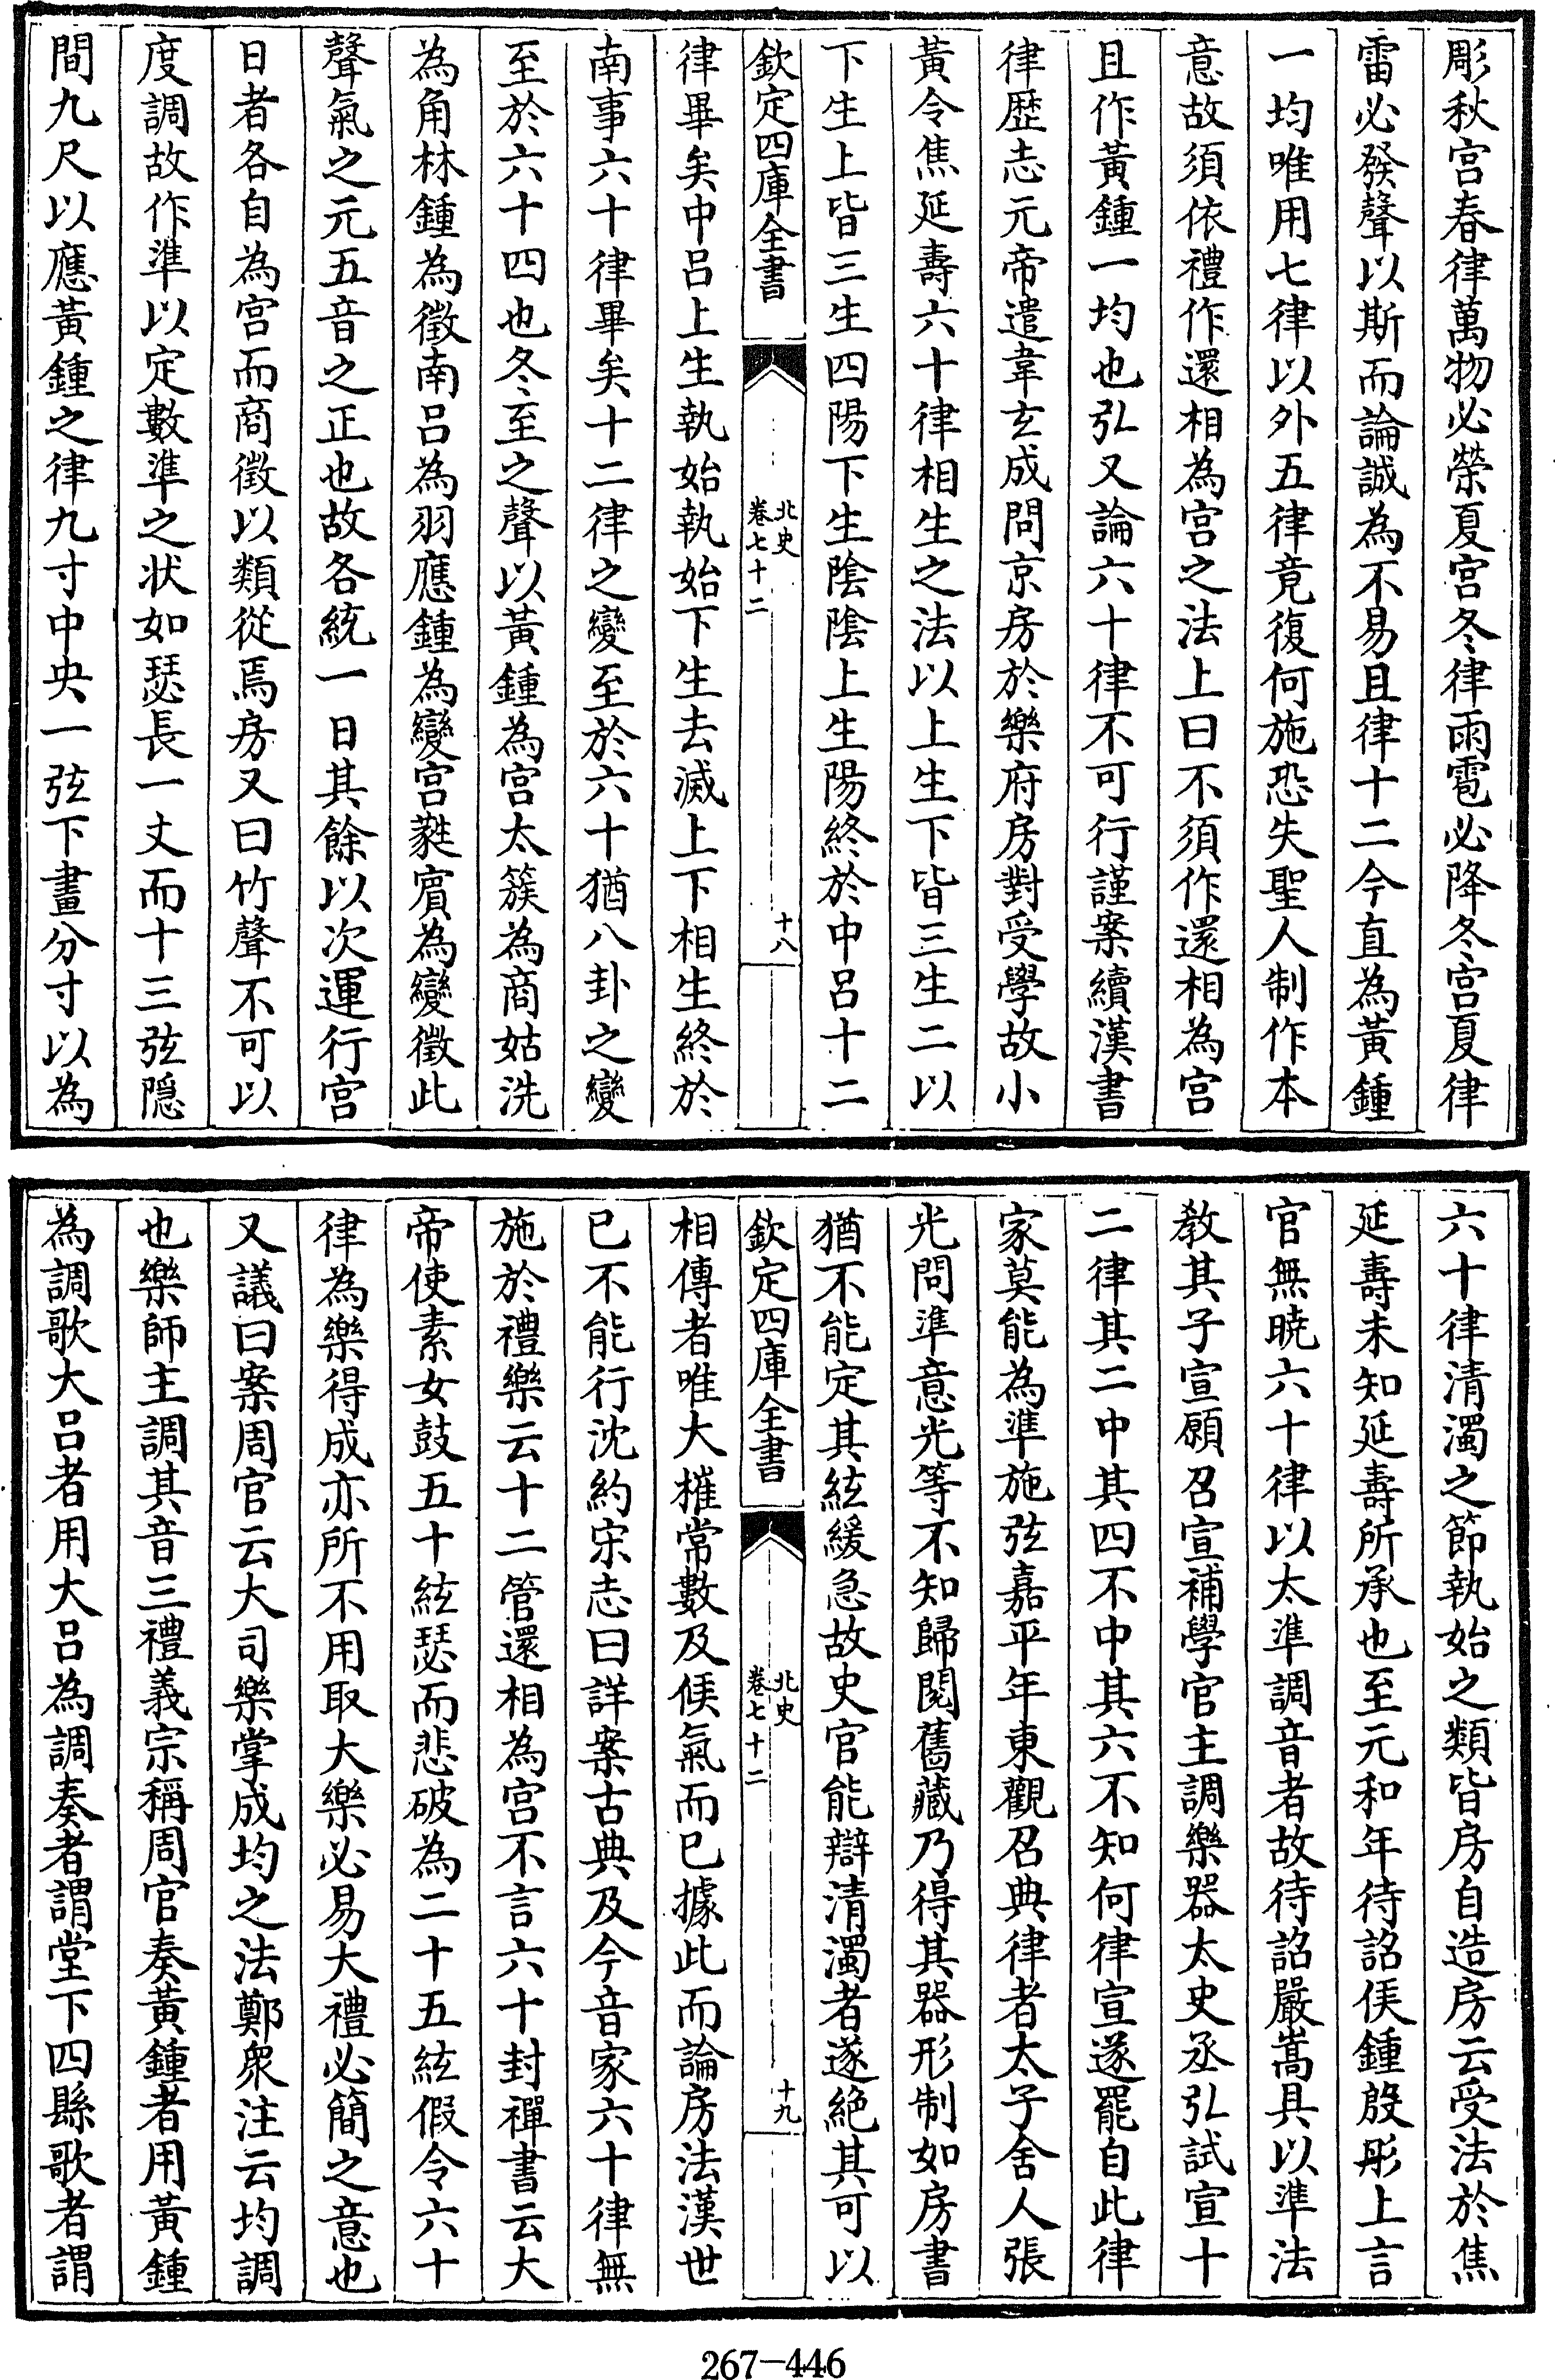 彫秋宫春律萬物必榮夏宫冬律雨雹必降冬宫夏律
雷必發聲以斯而論誠為不易且律十二今直為黃鍾
一均唯用七律以外五律竟復何施恐失聖人制作本
意故須依禮作還相為宫之法上曰不須作還相為宫
且作黃鍾一均也弘又論六十律不可行謹案續漢書
律歴志元帝遣韋玄成問京房於樂府房對受學故小
黃令焦延壽六十律相生之法以上生下皆三生二以
下生上皆三生四陽下生陰陰上生陽終於中呂十二
欽定四庫全書
北史
卷七十二
十八
律畢矣中呂上生執始執始下生去滅上下相生終於
南事六十律畢矣十二律之變至於六十猶八卦之變
至於六十四也冬至之聲以黃鍾為宫太簇為商姑洗
為角林鍾為徵南呂為羽應鍾為變宫蕤賓為變徵此
聲氣之元五音之正也故各統一日其餘以次運行宫
日者各自為宫而商徵以類從焉房又曰竹聲不可以
度調故作準以定數準之狀如瑟長一丈而十三弦隱
間九尺以應黃鍾之律九寸中央一弦下畫分寸以為
六十律清濁之節執始之類皆房自造房云受法於焦
延壽未知延壽所承也至元和年待詔候鍾殷彤上言
官無曉六十律以太準調音者故待詔嚴嵩具以準法
教其子宣願召宣補學官主調樂器太史丞弘試宣十
二律其二中其四不中其六不知何律宣遂罷自此律
家莫能為準施弦嘉平年東觀召典律者太子舍人張
光問準意光等不知歸閱舊藏乃得其器形制如房書
猶不能定其絃緩急故史官能辯清濁者遂絕其可以
欽定四庫全書
北史
卷七十二
十九
相傳者唯大摧常數及候氣而已據此而論房法漢世
已不能行沈約宋志曰詳案古典及今音家六十律無
施於禮樂云十二管還相為宫不言六十封禪書云大
帝使素女鼓五十絃瑟而悲破為二十五絃假令六十
律為樂得成亦所不用取大樂必易大禮必簡之意也
又議曰案周官云大司樂掌成均之法鄭衆注云均調
也樂師主調其音三禮義宗稱周官奏黃鍾者用黃鍾
為調歌大呂者用大呂為調奏者謂堂下四縣歌者謂
267-446